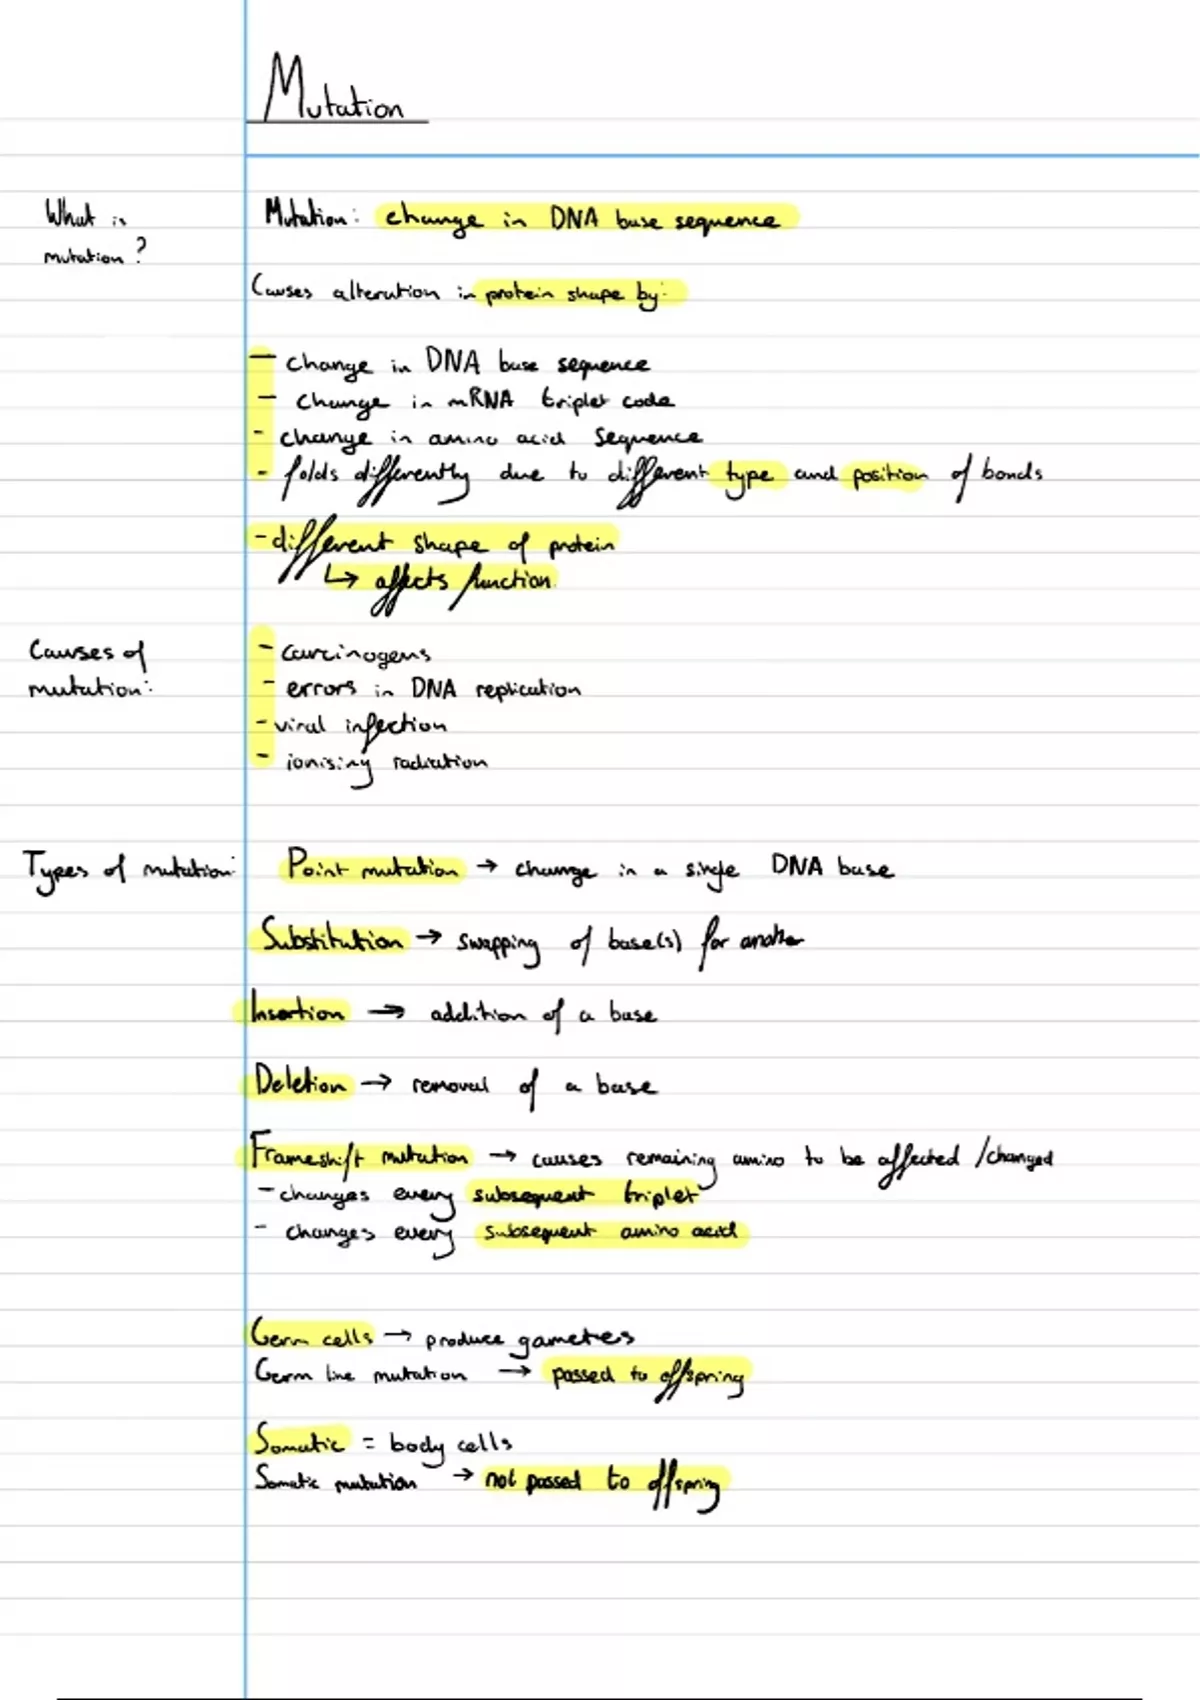 Mutation
What is
mutation?
Mutation: change in DNA base sequence
Causes alteration in protein shape by:
- change in DNA base sequence
- change in mRNA triplet code
- change in amino acid sequence
- folds differently due to different type and position of bonds
- different shape of protein
↳ affects function.
Causes of
mutation:
- carcinogens
- errors in DNA replication
- viral infection
- ionising radiation
Types of mutation:
Point mutation → change in a single DNA base
Substitution → swapping of base(s) for another
Insertion → addition of a base
Deletion → removal of a base
Frameshift mutation → causes remaining amino to be affected /changed
- changes every subsequent triplet
- changes every subsequent amino acid
Germ cells → produce gametes
Germ line mutation → passed to offspring
Somatic = body cells
Somatic mutation → not passed to offspring